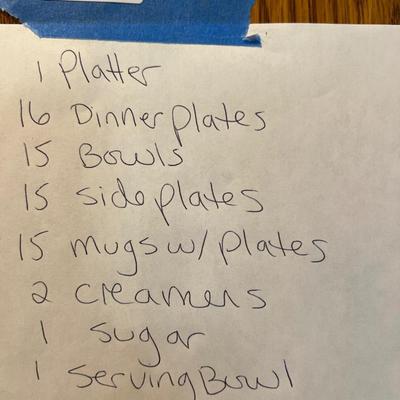 1 Platter
16 Dinner plates
15 Bowls
15 side plates
15 mugs w/ plates
2 creamers
1 sugar
1 serving Bowl